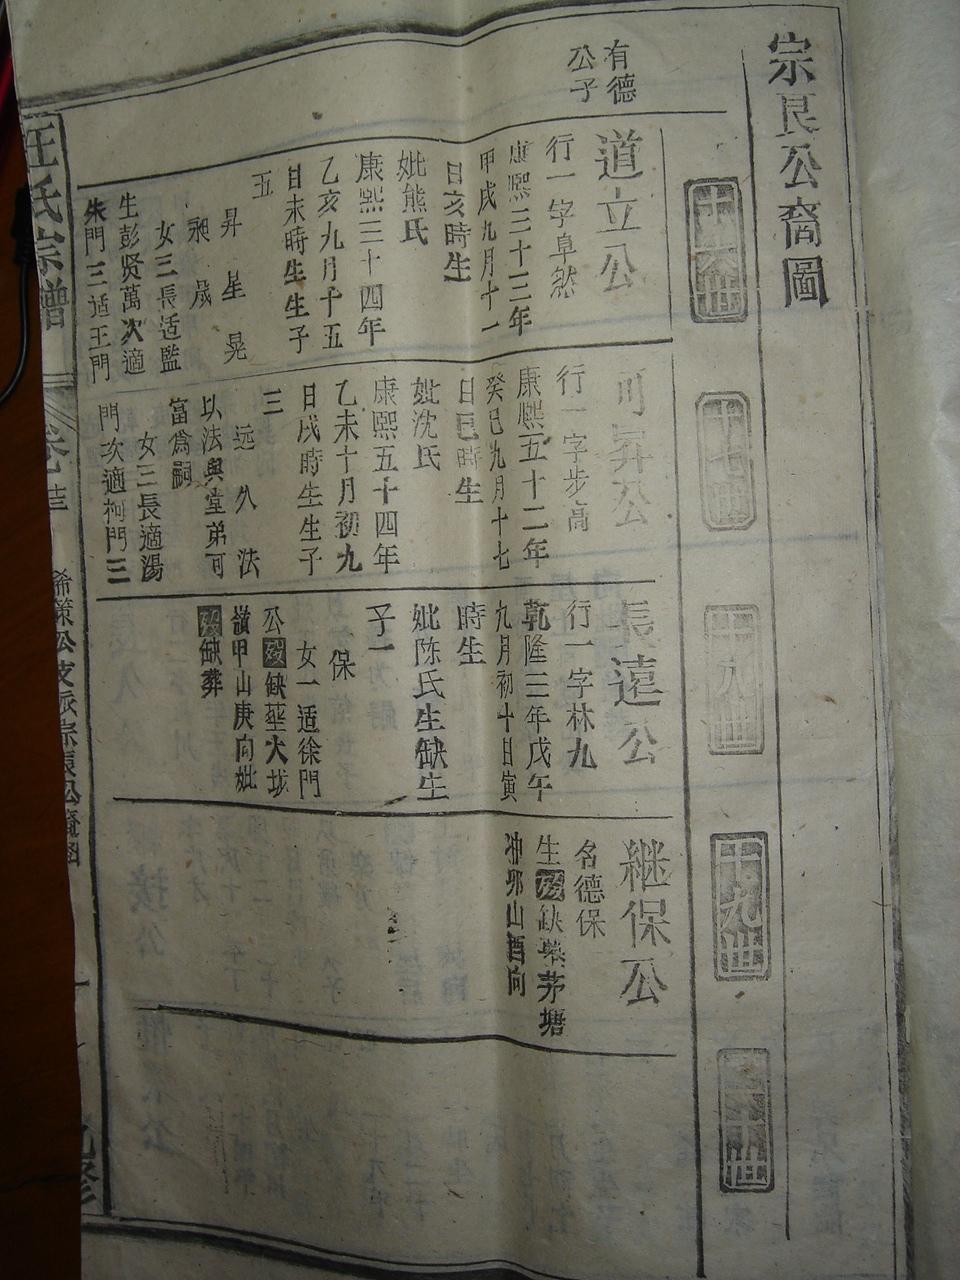 宗艮公裔圖
十六世
十七世
十八世
十九世
二十世
有德
公子
道立公
行一字卓然
康熙三十三年
甲戌九月十一
日亥時生
妣熊氏
康熙三十四年
乙亥九月十五
日未時生生子
五
昇 星 晃
昶 晟
女三長适監
生彭贤萬次適
朱門三适王門
可昇公
行一字步高
康熙五十二年
癸巳九月十七
日巳時生
妣沈氏
康熙五十四年
乙未十月初九
日戌時生生子
三
远 久 法
以法與堂弟可
富為嗣
女三長適湯
門次適柯門三
長遠公
行一字林九
乾隆三年戊午
九月初十日寅
時生
妣陈氏生缺生
子一
保
女一适徐門
公殁缺塟大垅
嶺甲山庚向妣
殁缺葬
継保公
名德保
生殁缺塟茅塘
冲卯山酉向
汪氏宗譜
卷
希策公支派宗艮公裔圖
一
九修